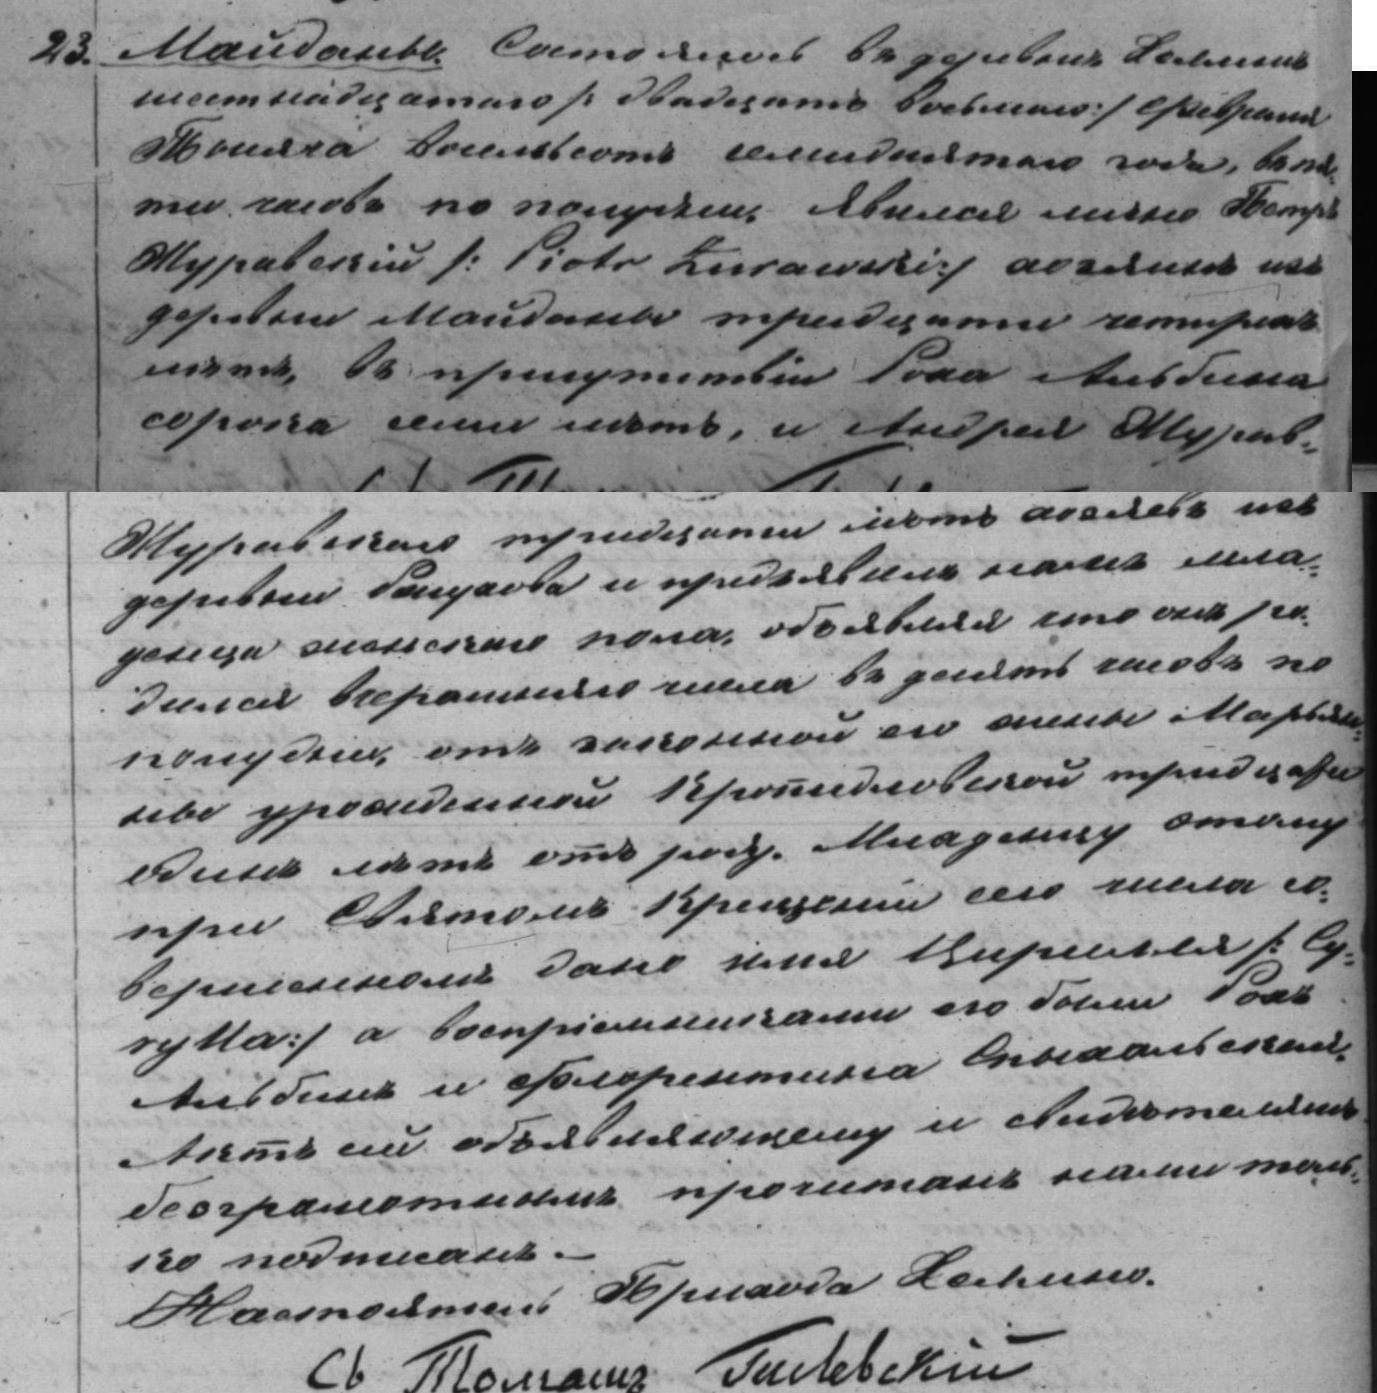 23. Майданы. Состоялось въ деревнѣ
шестнадцатаго /: двадцать восьмаго :/ Февраля
Тысяча восемьсотъ семидесятаго года, въ пя-
ти часовъ по полудни, явился лично Петръ
Журавскій /: Piotr Żurawski :/ хозяинъ изъ
деревни Майданы тридцати четырехъ
лѣтъ, въ присутствіи Роха Альбина
сорока семи лѣтъ, и Андрея Журав-
Журавскаго тридцати лѣтъ хозяевъ изъ
деревни и предъявилъ намъ мла-
денца женскаго пола, объявляя что онъ ро-
дился вчерашняго числа въ десять часовъ по
полудни, отъ законной его жены Марьян-
ны урожденной Кропидловской тридцати
одинъ лѣтъ отъ роду. Младенцу этому
при Святомъ Крещеніи сего числа со-
вершенномъ дано имя /: Cy-
rylla :/ а воспріемниками его были Рохъ
Альбинъ и Флорентина
Актъ сей объявляющему и свидѣтелямъ
безграмотнымъ прочитанъ нами толь-
ко подписанъ. —
Настоятель Прихода
Кс Томашъ